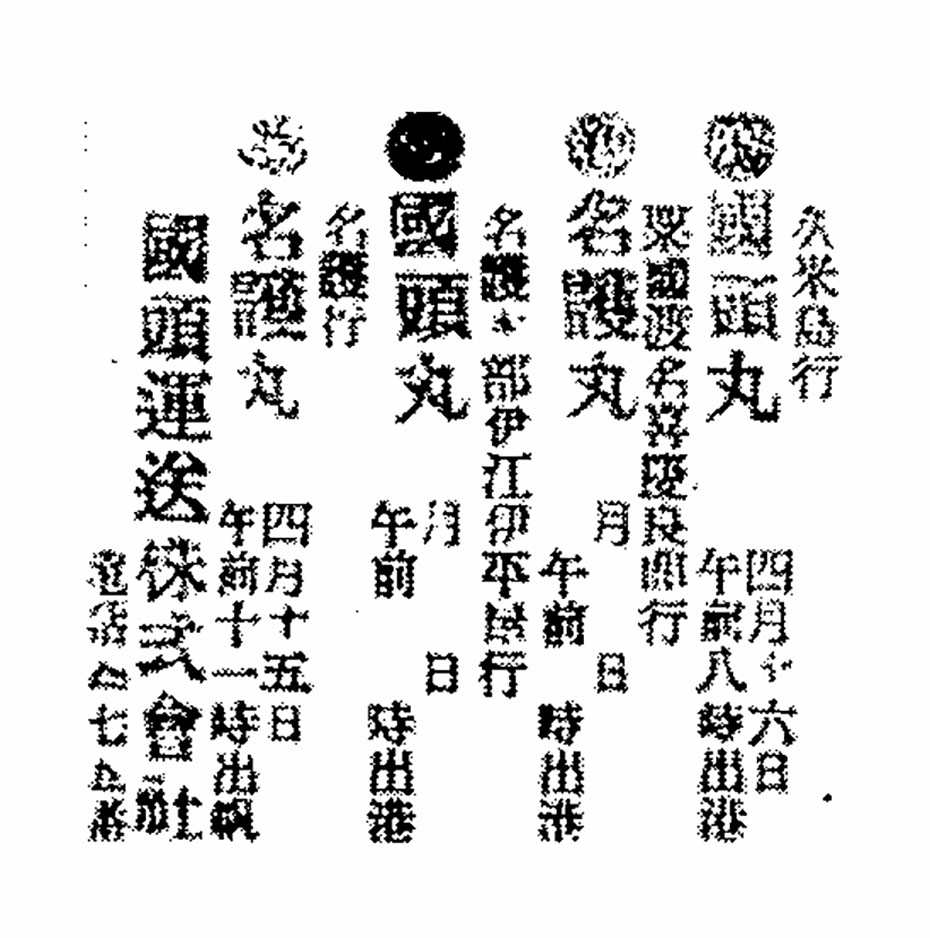 久米島行
國頭丸
四月十六日
午前八時出港
粟國渡名喜慶良間行
名護丸
月 日
午前 時出港
名護本部伊江伊平屋行
國頭丸
月 日
午前 時出港
名護行
名護丸
四月十五日
午前十一時出帆
國頭運送株式會社
電話 七 番